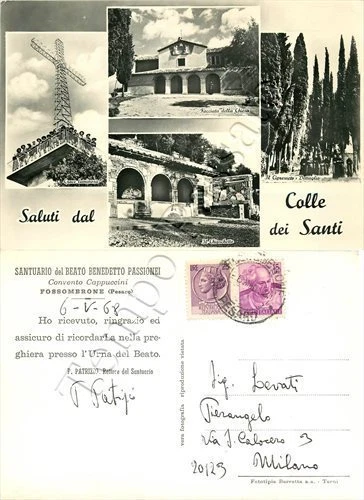 Facciata della Chiesa
Saluti dal
Colle
dei Santi
SANTUARIO del BEATO BENEDETTO PASSIONEI
Convento Cappuccini
FOSSOMBRONE (Pesaro)
6-V-68
Ho ricevuto, ringrazio ed
assicuro di ricordarLa nella pre-
ghiera presso l'Urna del Beato.
P. PATRIZIO, Rettore del Santuario
P. Patrizio
vera fotografia riproduzione vietata
Sig. Levati
Pierangelo
Via S. Calocero 3
20123 Milano
Fototipia Berretta s.a. - Terni